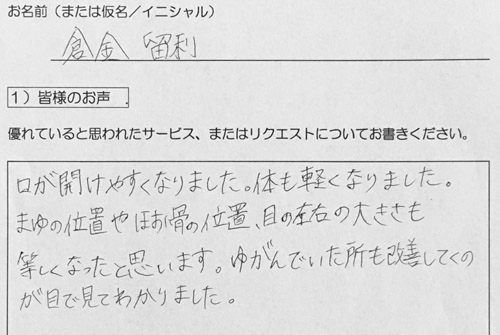 お名前（または仮名／イニシャル）
倉金 留利
1）皆様のお声
優れていると思われたサービス、またはリクエストについてお書きください。
口が開けやすくなりました。体も軽くなりました。
まゆの位置やほお骨の位置、目の左右の大きさも
等しくなったと思います。ゆがんでいた所も改善してくの
が目で見てわかりました。